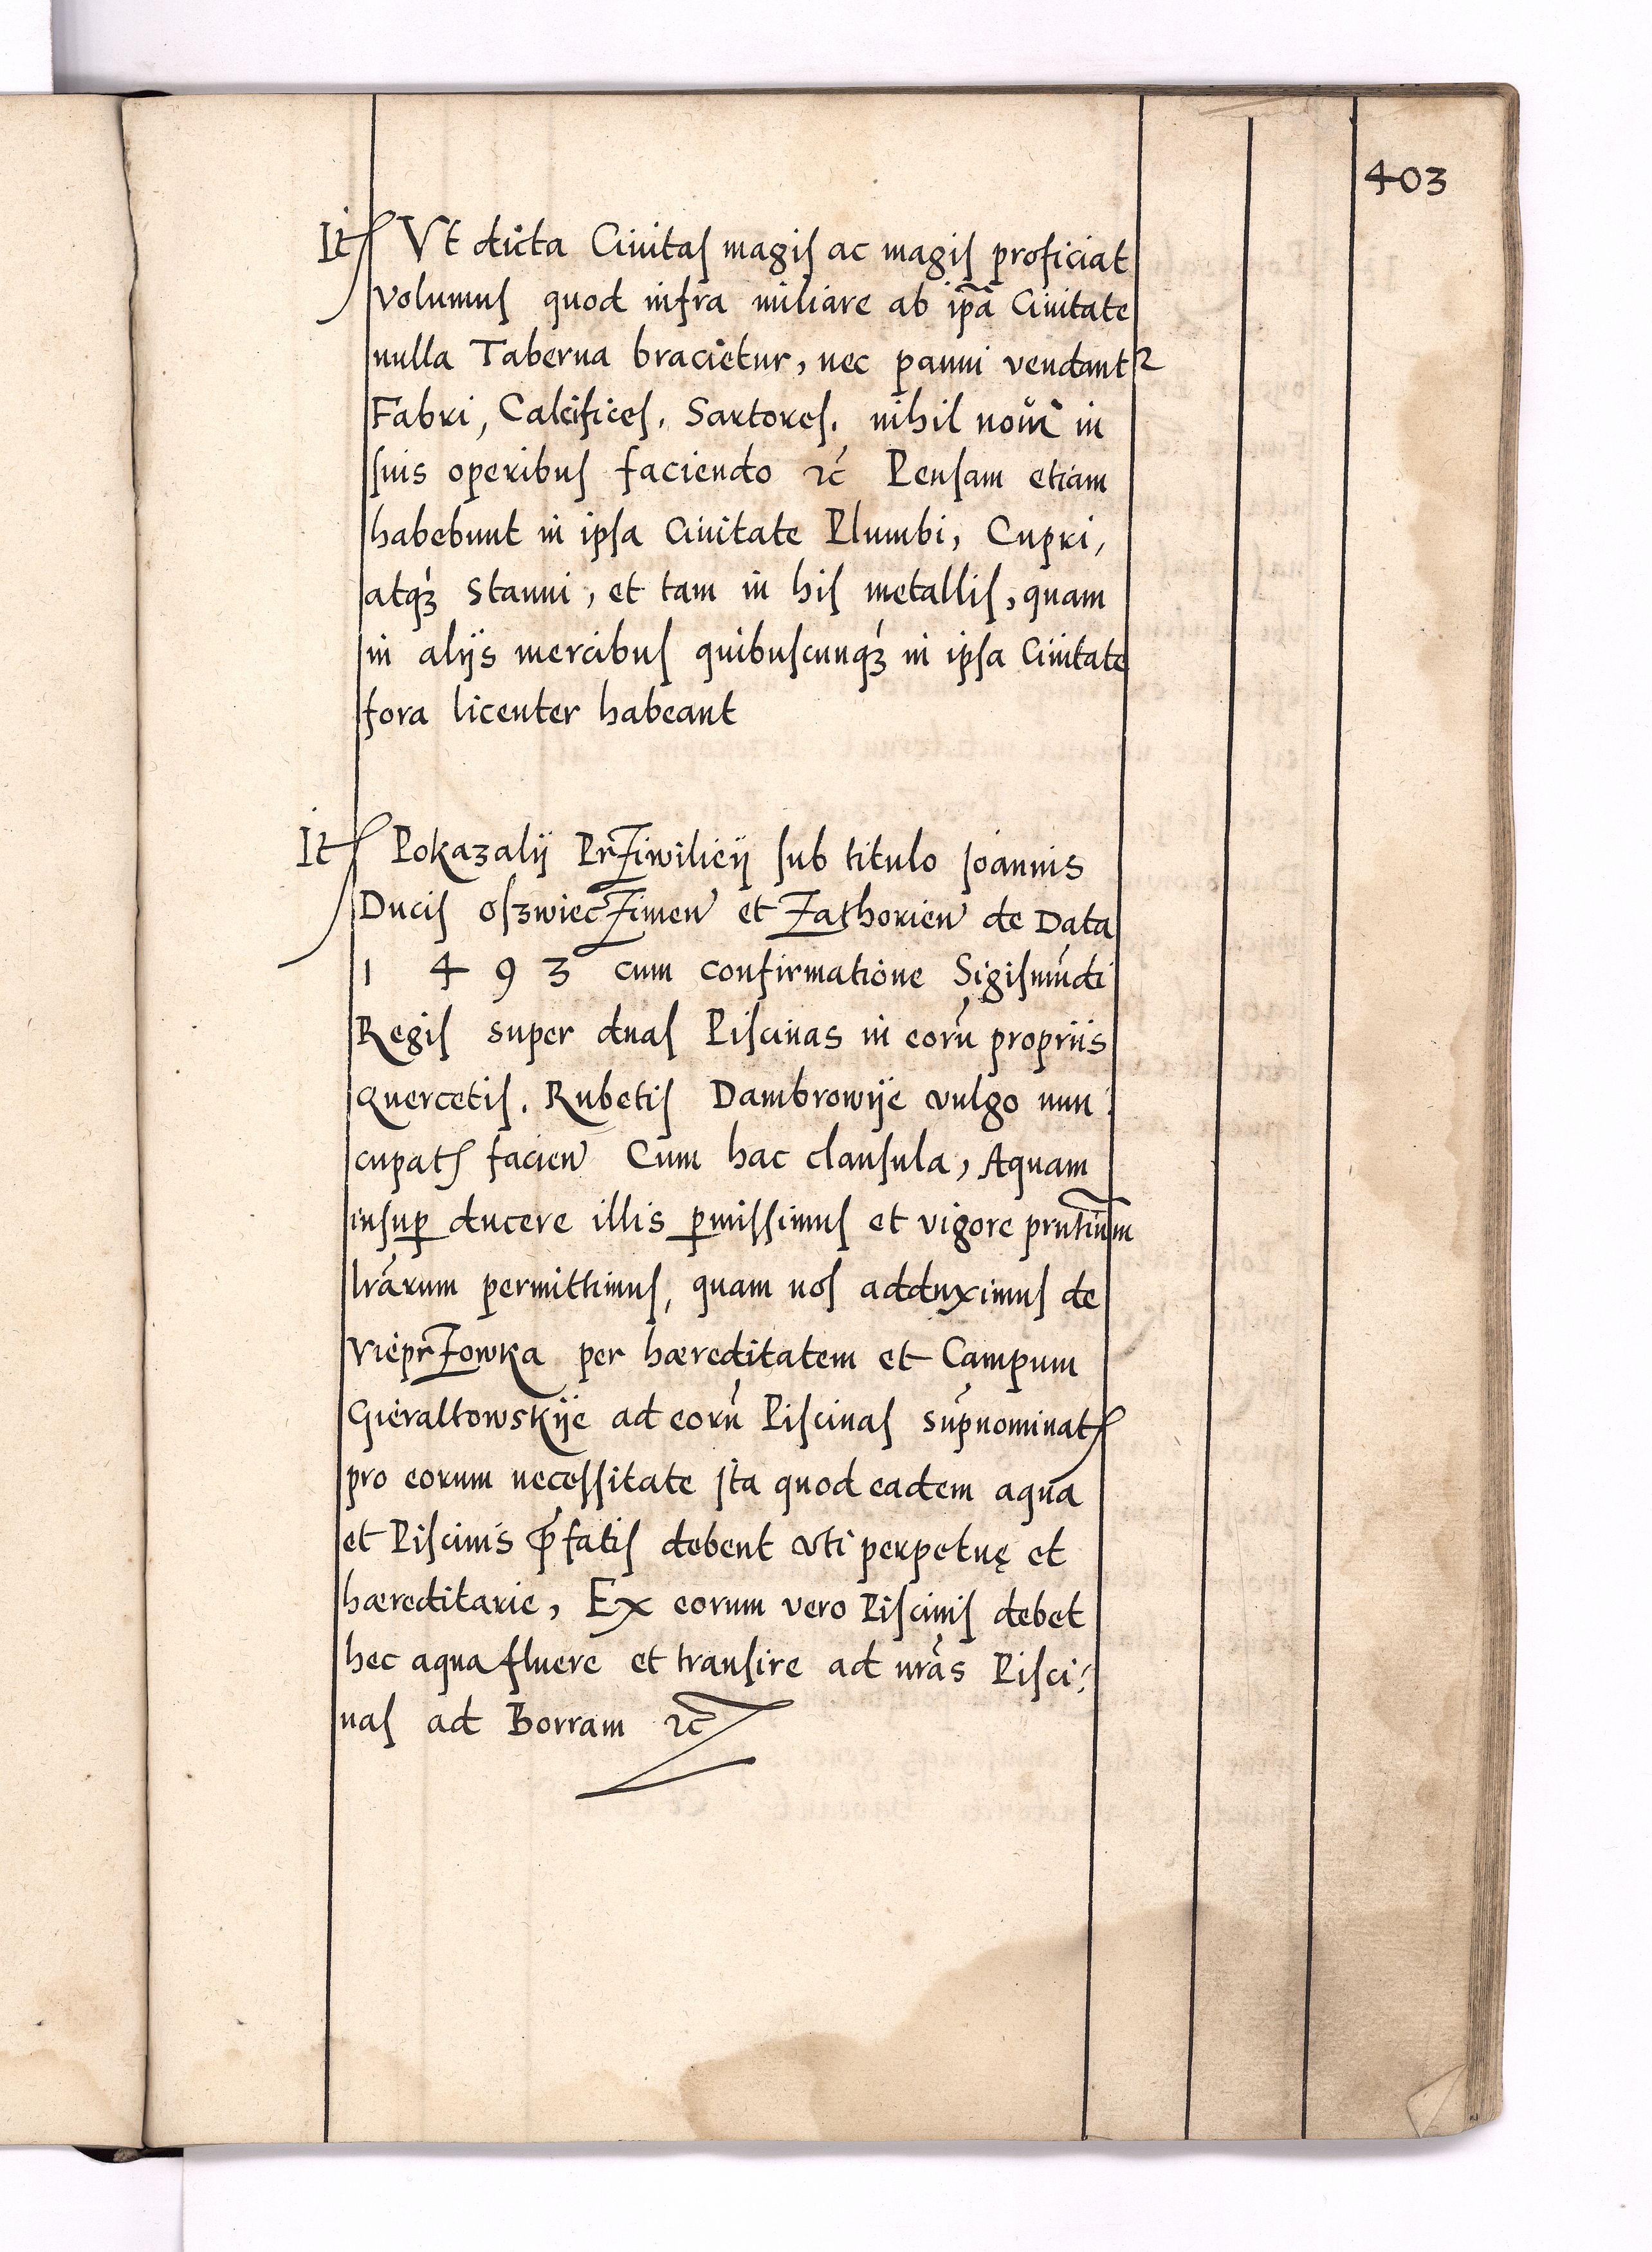 403
Itſ Vt dicta Ciuitaſ magiſ ac magiſ proficiat
volumuſ quod infra miliare ab ip̃a Ciuitate
nulla Taberna bracietur, nec panni vendantꝛ
Fabri, Calcificeſ, Sartoreſ. nihil noūi in
ſuis operibuſ faciendo ꝛc̃ Penſam etiam
habebunt in ipſa Ciuitate Plumbi, Cupri,
atqꝫ Stanni, et tam in hiſ metalliſ, quam
in alijs mercibuſ quibuſcunqꝫ in ipſa Ciuitate
fora licenter habeant
Itſ Pokazalÿ PrZiwilieÿ ſub titulo Joannis
Duciſ OſzwiecZimen̄ et Zathorien̄ de Data
1 4 9 3 cum confirmatione Sigiſmūdi
Regiſ super duaſ Piſcinas in eorū propriis
Quercetiſ. Rubetiſ Dambrowÿe vulgo nun
cupatſ facien̄ Cum hac clauſula, Aquam
inſuꝑ ducere illis ꝑmiſſimuſ et vigore pñtium
lr̃arum permittimuſ, quam noſ adduximuſ de
VieprZowka per hæreditatem et Campum
Gieraltowskÿe ad eorū Piſcinaſ sūpnominatſ
pro eorum neceſſitate Jta quod eadem aqua
et Piſcinis p̃fatiſ debent vti perpetuę et
hæreditarie, Ex eorum vero Piſciniſ debet
hec aqua fluere et tranſire ad nr̃as Piſci:
naſ ad Borram ꝛc̃